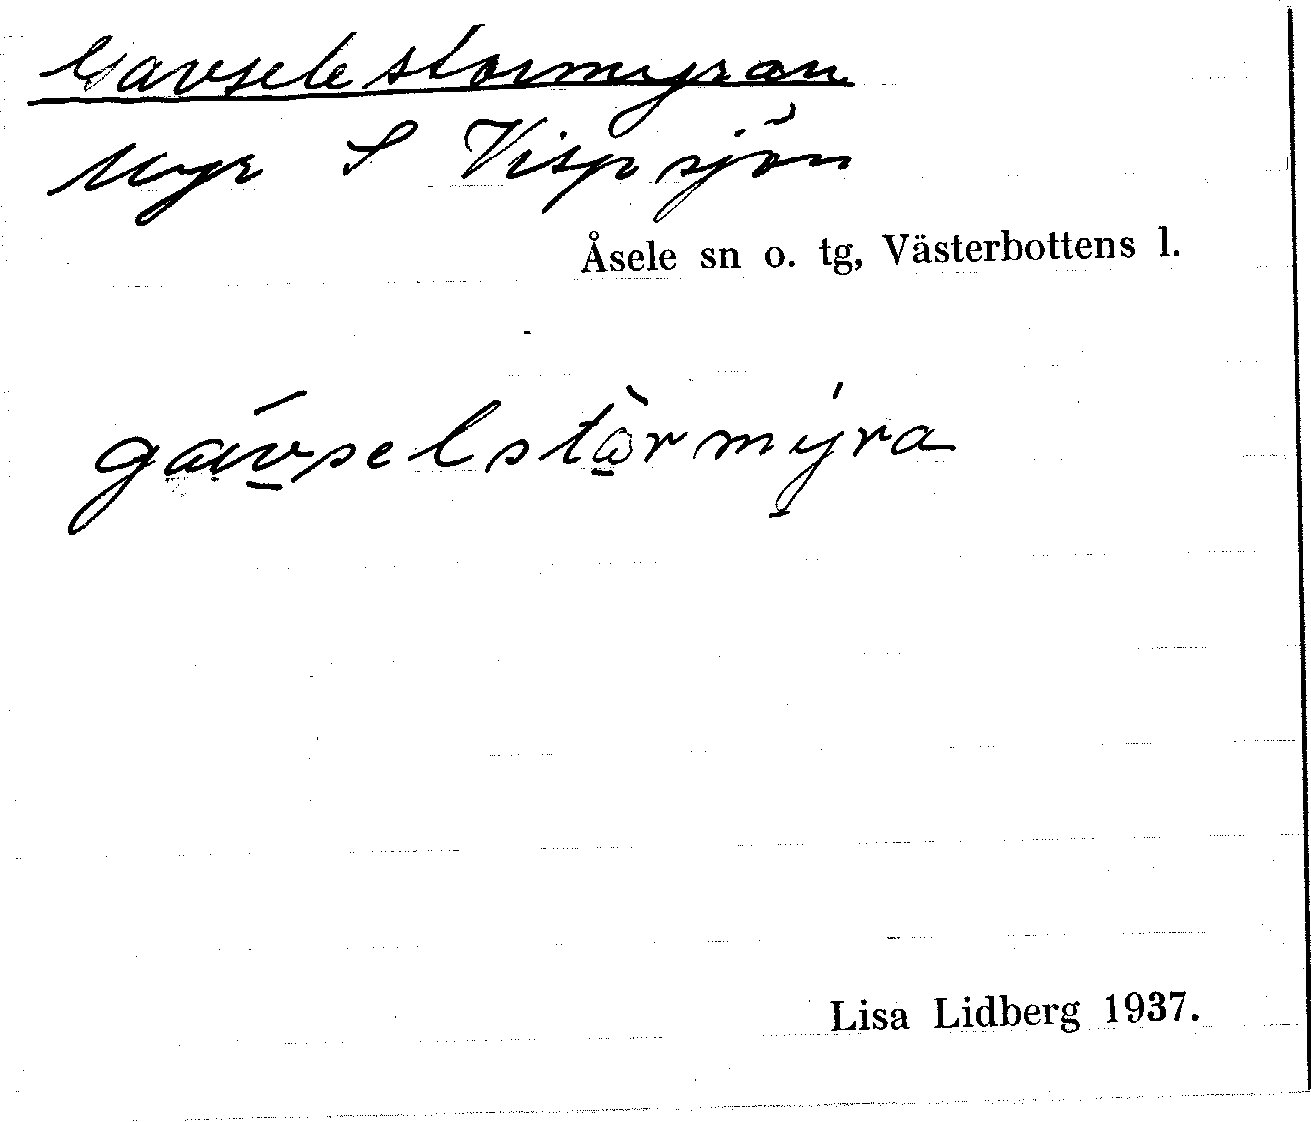 Gavselestormyran
Myr S Vispsjön
Åsele sn o. tg, Västerbottens l.
gávselstòrmýra
Lisa Lidberg 1937.